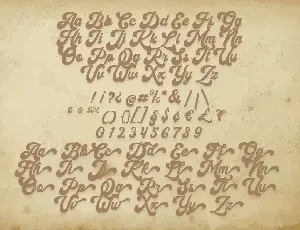 Aa Bb Cc Dd Ee Ff Gg
Hh Ii Jj Kk Ll Mm Nn
Oo Pp Qq Rr Ss Tt Uu
Vv Ww Xx Yy Zz
! i ? @ # % * & / | \
() {} [] § $ ¢ € £ ₹
0 1 2 3 4 5 6 7 8 9
Aa Bb Cc Dd Ee Ff Gg
Hh Ii Jj Kk Ll Mm Nn
Oo Pp Qq Rr Ss Tt Uu
Vv Ww Xx Yy Zz